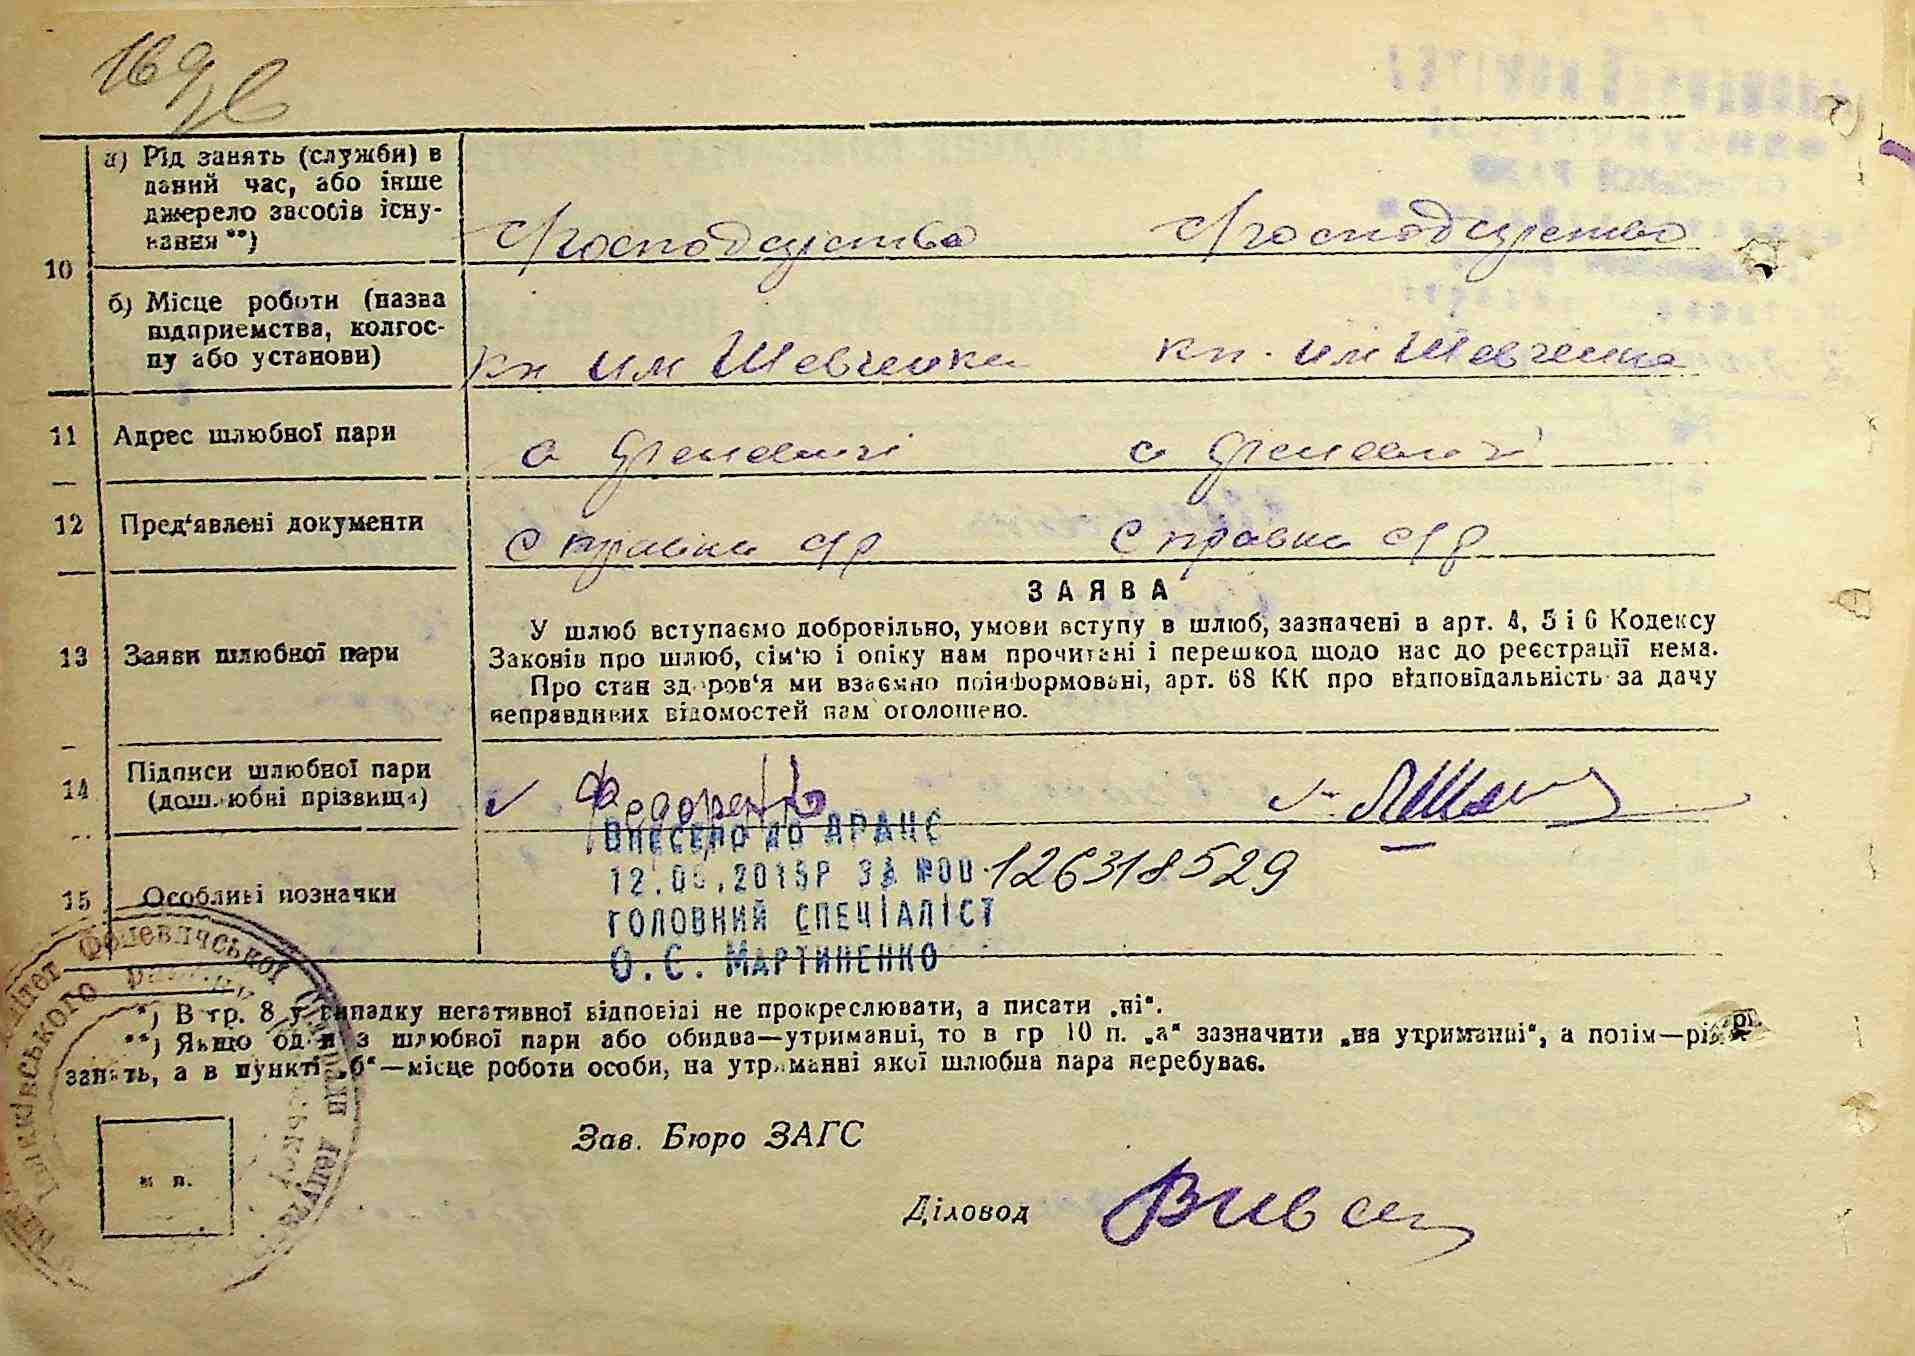 169
10
а) Рід занять (служби) в
даний час, або інше
джерело засобів існу-
вання**)
с/господарства с/господарство
б) Місце роботи (назва
підприємства, колгос-
пу або установи)
кп им Шевченка кп. им Шевченка
11 Адрес шлюбної пари
с с
12 Пред'явлені документи
Справка с/р Справка с/р
ЗАЯВА
13 Заяви шлюбної пари
У шлюб вступаємо добровільно, умови вступу в шлюб, зазначені в арт. 4, 5 і 6 Кодексу
Законів про шлюб, сім'ю і опіку нам прочитані і перешкод щодо нас до реєстрації нема.
Про стан здоров'я ми взаємно поінформовані, арт. 68 КК про відповідальність за дачу
неправдивих відомостей нам оголошено.
14 Підписи шлюбної пари
(дошлюбні прізвища)
Федорен
Внесено до ДРАЦС
12.0 .2015р за №00 126318529
15 Особливі позначки
головний спеціаліст
О.С. Мартиненко
*) В гр. 8 у випадку негативної відповіді не прокреслювати, а писати „ні“.
**) Якщо один з шлюбної пари або обидва—утриманці, то в гр 10 п. „а“ зазначити „на утриманні“, а потім—рід
занять, а в пункті „б“—місце роботи особи, на утриманні якої шлюбна пара перебуває.
Зав. Бюро ЗАГС
м п.
Діловод